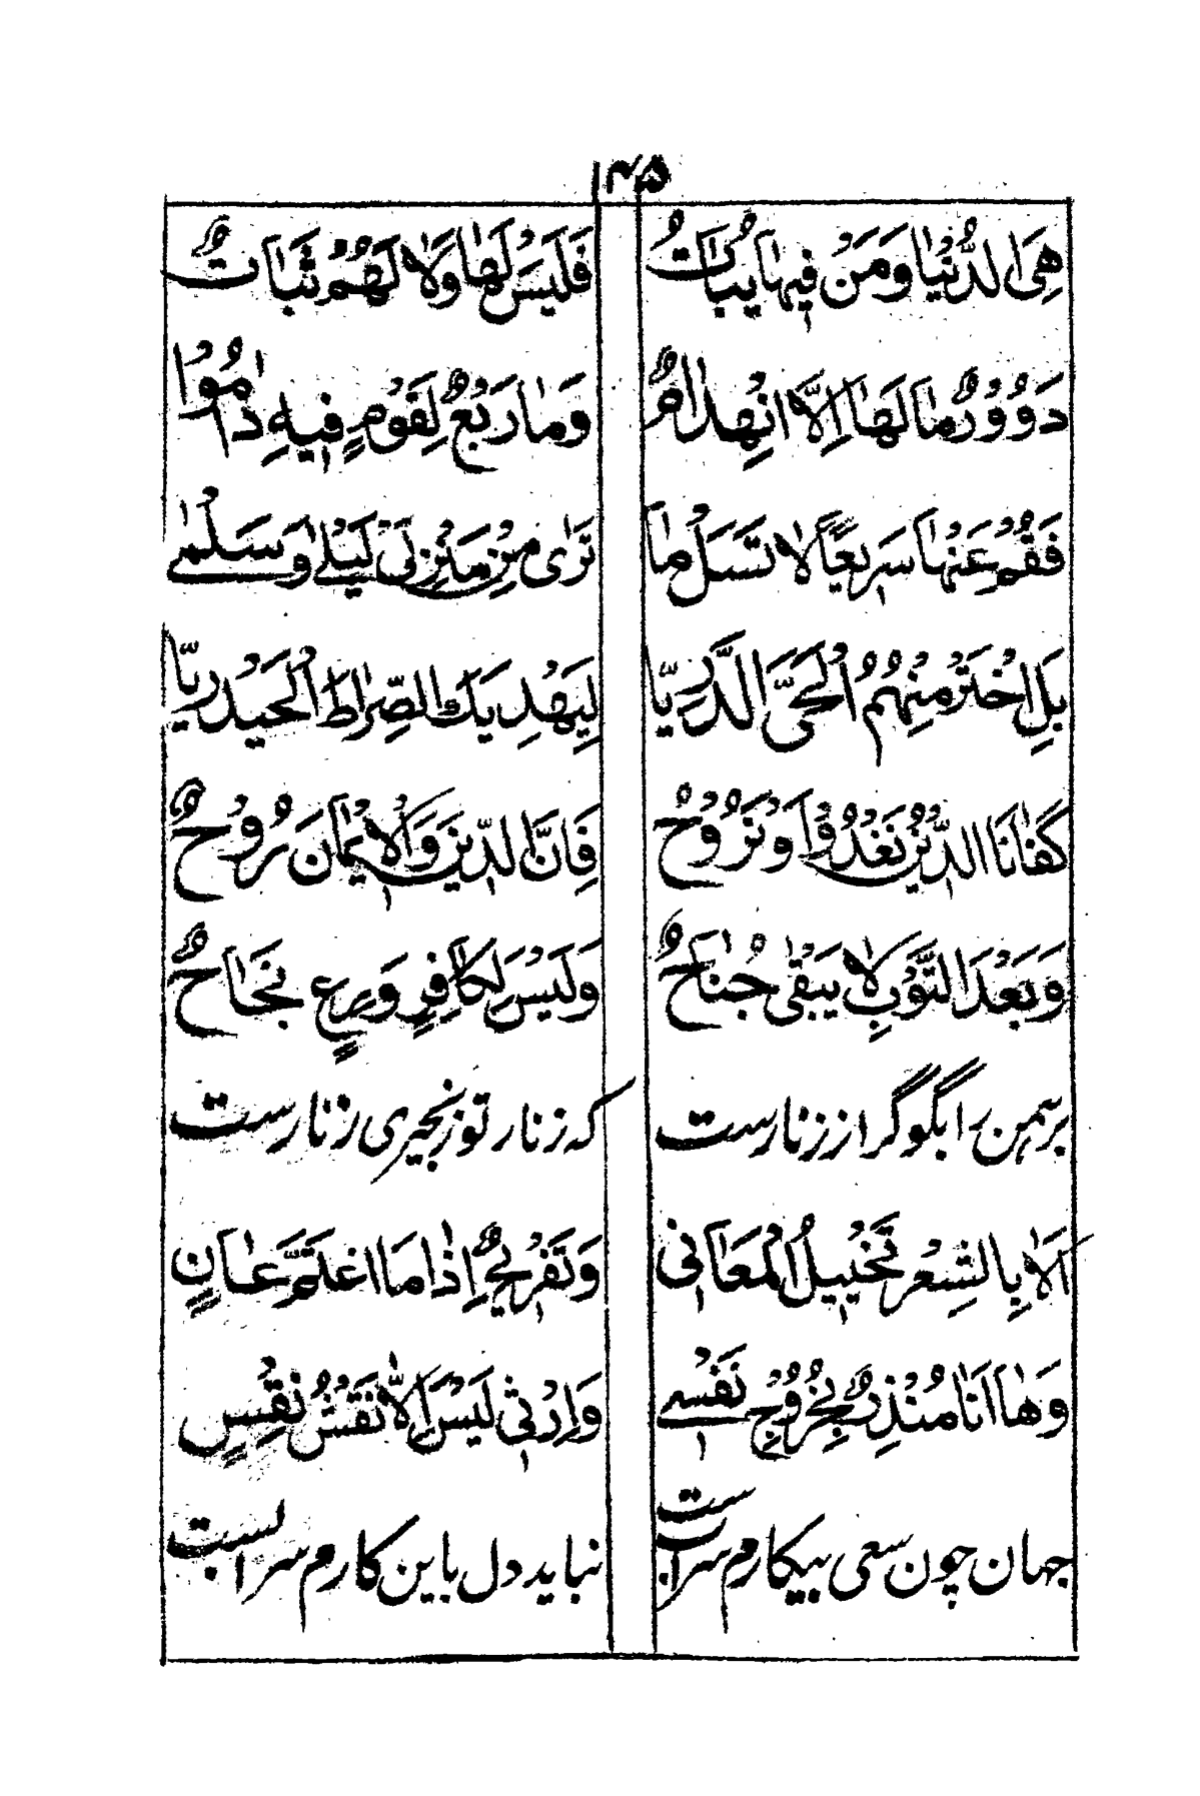 ۱۴۵
هِيَ الدُّنْيَا وَمَنْ فِيهَا يُبَاتُ فَلَيْسَ لَهَا وَلَا لَهُمْ ثَبَاتٌ
دَوُوْرٌ مَا لَهَا اِلَّا انْهِدَامٌ وَمَا رَبْعٌ لِقَوْمٍ فِيهِ دَامُوْا
فَقُمْ عَنْهَا سَرِيعًا لَا تَسَلْ مَا تَرٰى مِنْ مَنْزِلَىْ لَيْلٰى وَسَلْمٰى
بَلِ اخْتَرْ مِنْهُمُ الْحَىَّ الَّدَرِيَّا لِيَهْدِيَكَ الصِّرَاطَ الْحَيْدَرِيَّا
كَفَانَا الدِّيْنُ نَغْدُوْا وَنَرُوْحُ فَاِنَّ الدِّيْنَ وَالْاِيْمَانَ رُوْحٌ
وَبَعْدَ التَّوْبِ لَا يَبْقٰى جُنَاحٌ وَلَيْسَ لِكَافِرٍ وَرِعٍ نَجَاحٌ
برہمن را بگو گر از زنارست که زنار تو زنجیری ز نارست
اَلَا بِالشِّعْرِ تَخْيِيلُ الْمَعَانِى وَتَفْرِيْحٌ اِذَا مَا اغْتَمَّ عَانٍ
وَهَا اَنَا مُنْذِرٌ بِخُرُوْجِ نَفْسِى وَاِرْثِى لَيْسَ اِلَّا نَقْشُ نِقْسٍ
جهان چون سعی بیکارم سرابست نباید دل باین کارم سرابست